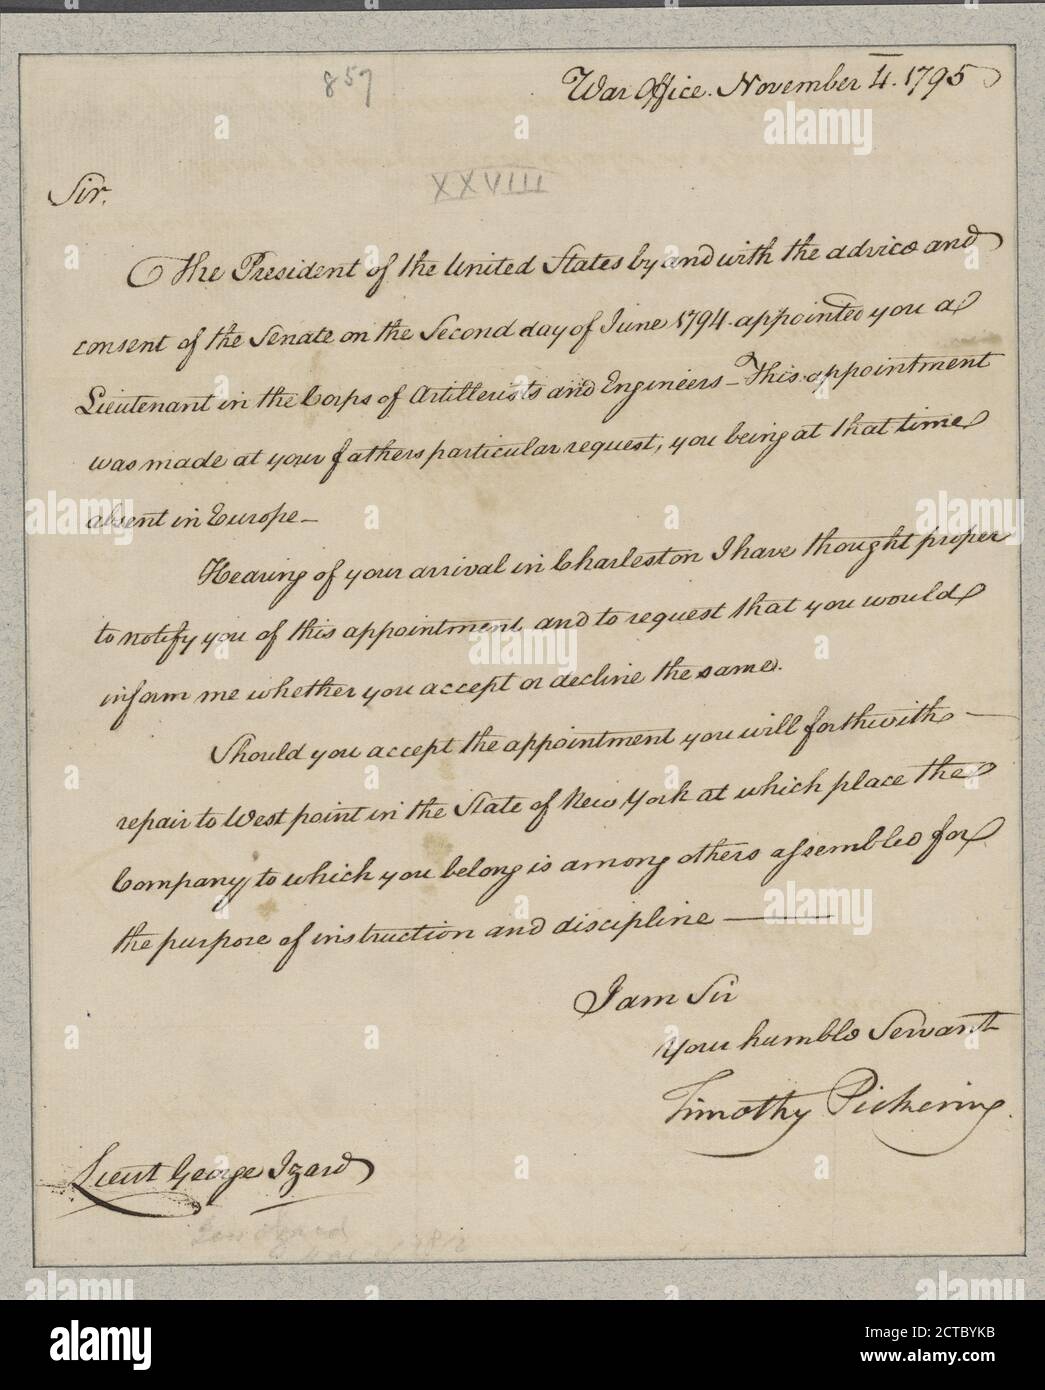 857
War Office. November 4. 1795
XXVIII
Sir,
The President of the United States by and with the advice and
consent of the Senate on the Second day of June 1794. appointed you a
Lieutenant in the Corps of Artillerists and Engineers - This appointment
was made at your fathers particular request, you being at that time
absent in Europe -
Hearing of your arrival in Charleston I have thought proper
to notify you of this appointment and to request that you would
inform me whether you accept or decline the same.
Should you accept the appointment you will forthwith -
repair to West point in the State of New York at which place the
Company to which you belong is among others assembled for
the purpose of instruction and discipline -
I am Sir
Your humble Servant
Timothy Pickering.
Lieut George Izard
alamy
Image ID: 2CTBYKB
www.alamy.com